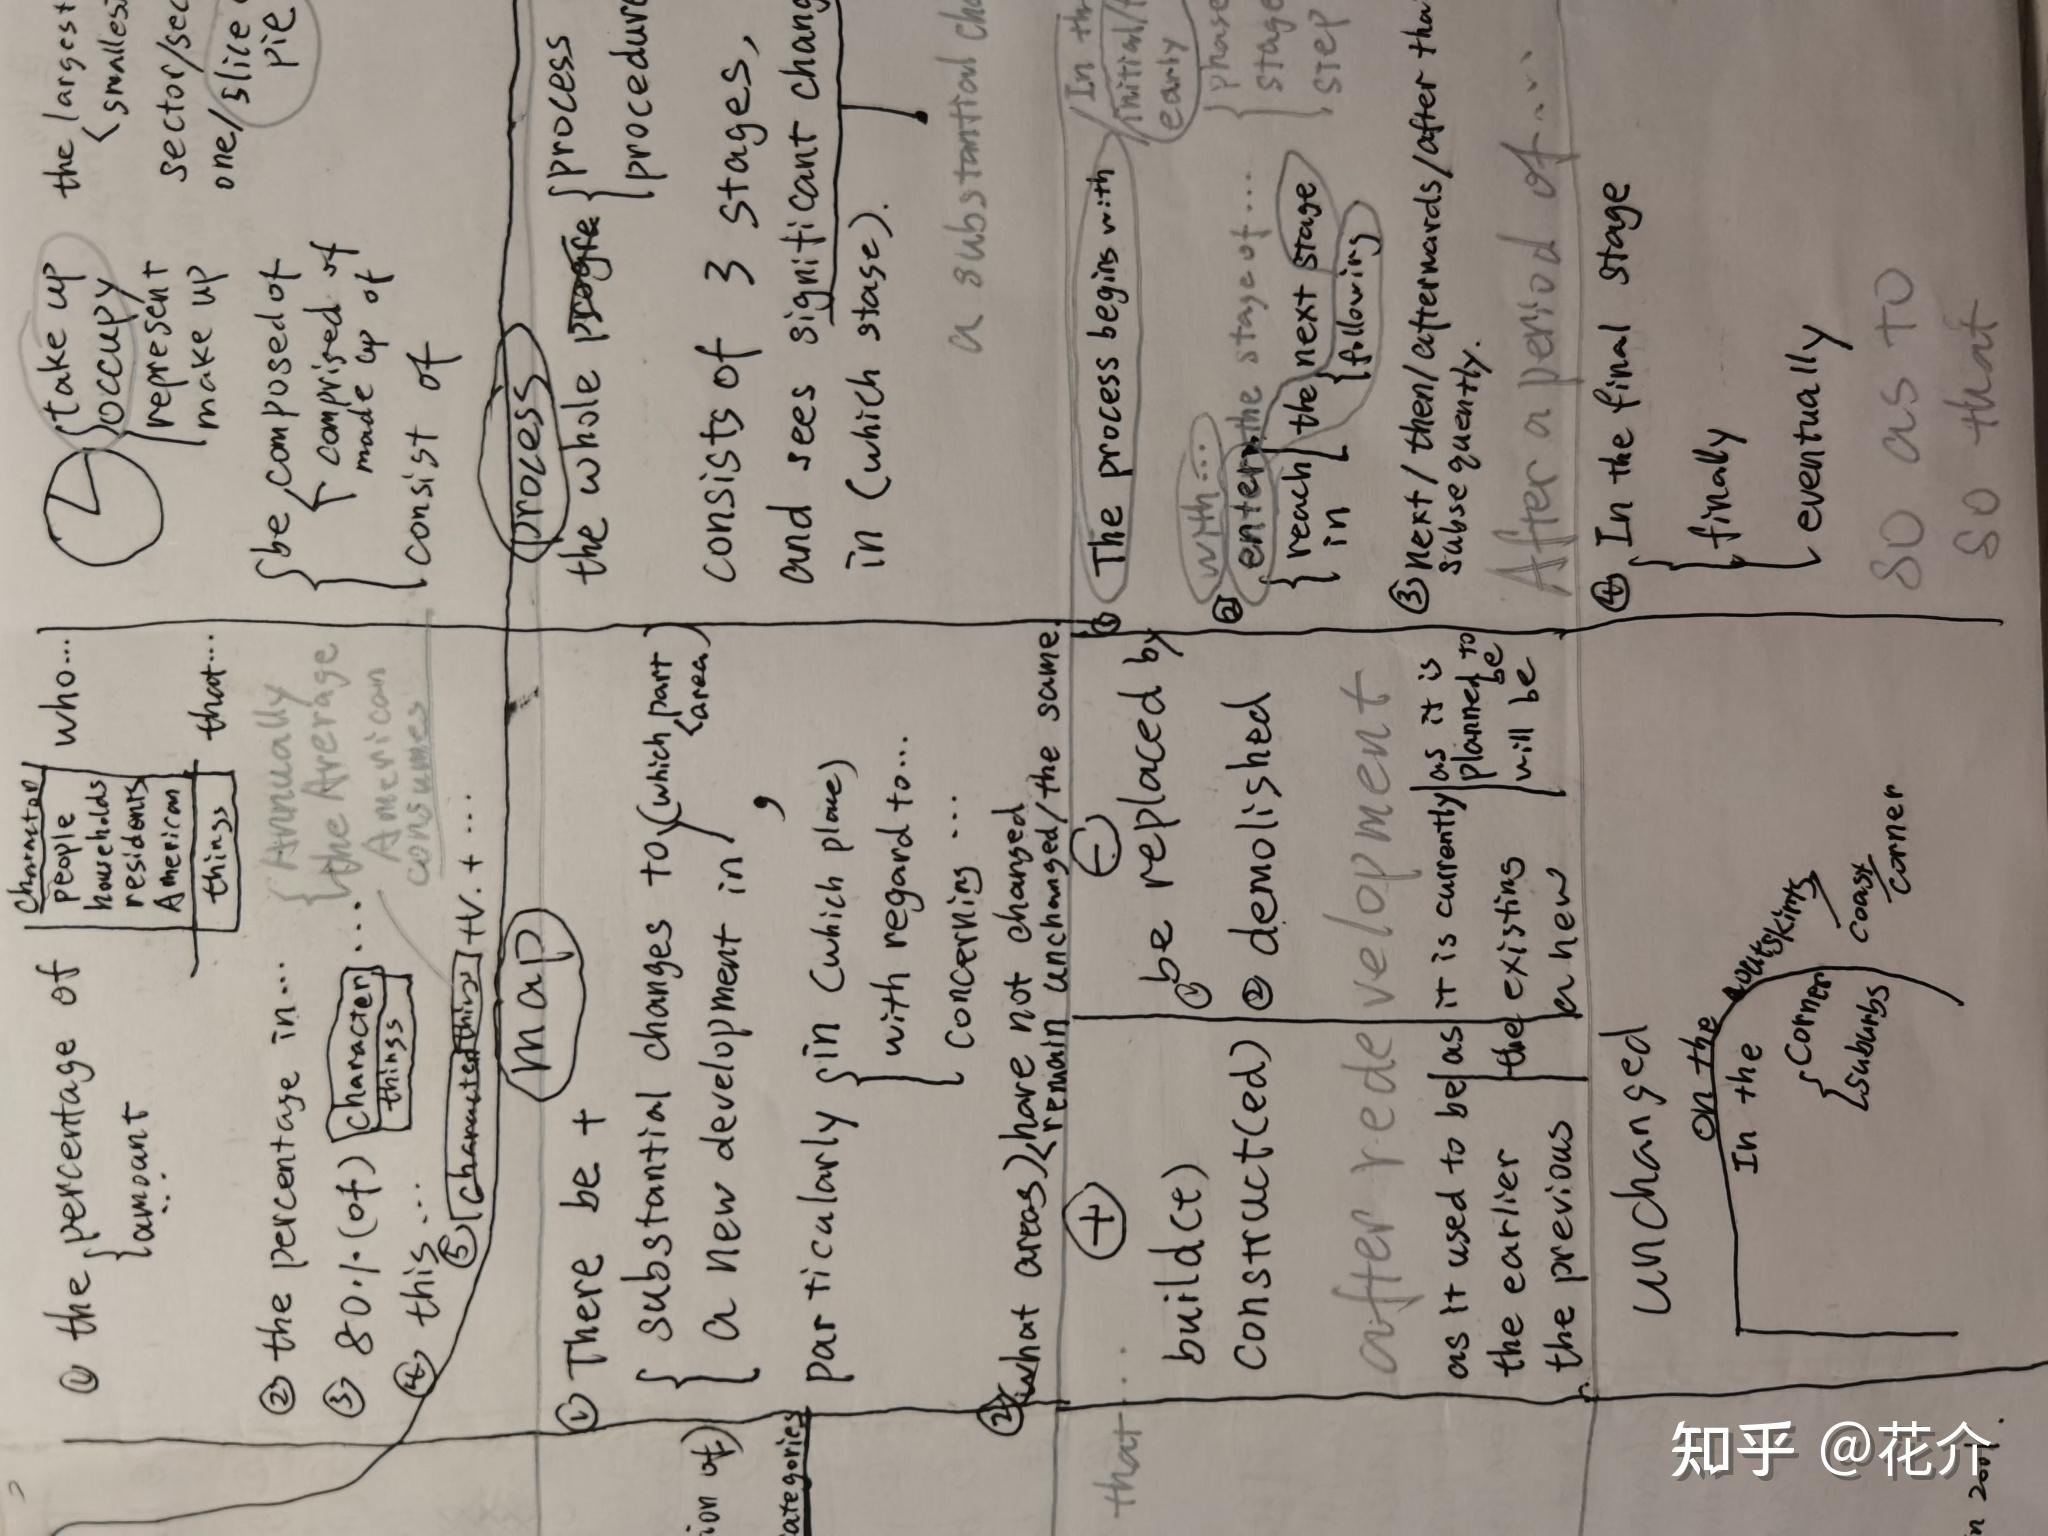 ① the percentage of
amount
...
character
people
households
residents
American
things
who...
that...
② the percentage in...
③ 80% (of) character ...
things
④ this...
⑤ character/things +V. + ...
Annually
the Average
American
consumes
take up
occupy
represent
make up
the largest
smallest
one/slice
pie
be composed of
comprised of
made up of
consist of
map
① There be +
substantial changes to (which part
area)
a new development in ,
particularly in (which place)
with regard to...
concerning ...
② (what areas) have not changed
remain unchanged/the same.
+
build(t)
construct(ed)
-
① be replaced by
② demolished
after redevelopment
as it used to be
as it is currently
as it is
planned to
be
will be
the earlier
the existing
the previous
a new
unchanged
on the outskirts
In the
corner
suburbs
coast
corner
process
the whole
process
procedure
consists of 3 stages,
and sees significant chang
in (which stage).
a substantial cha
① The process begins with
In th
initial/
early
with...
② enter the stage of...
reach the next stage
in following
phase
stage
step
③ next/then/afterwards/after tha
subsequently.
After a period of...
④ In the final stage
finally
eventually
so as to
so that
ion of)
categories
that...
in 2001.
知乎 @花介